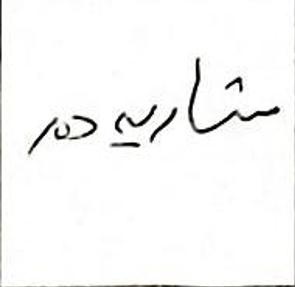 مشاريع دمر